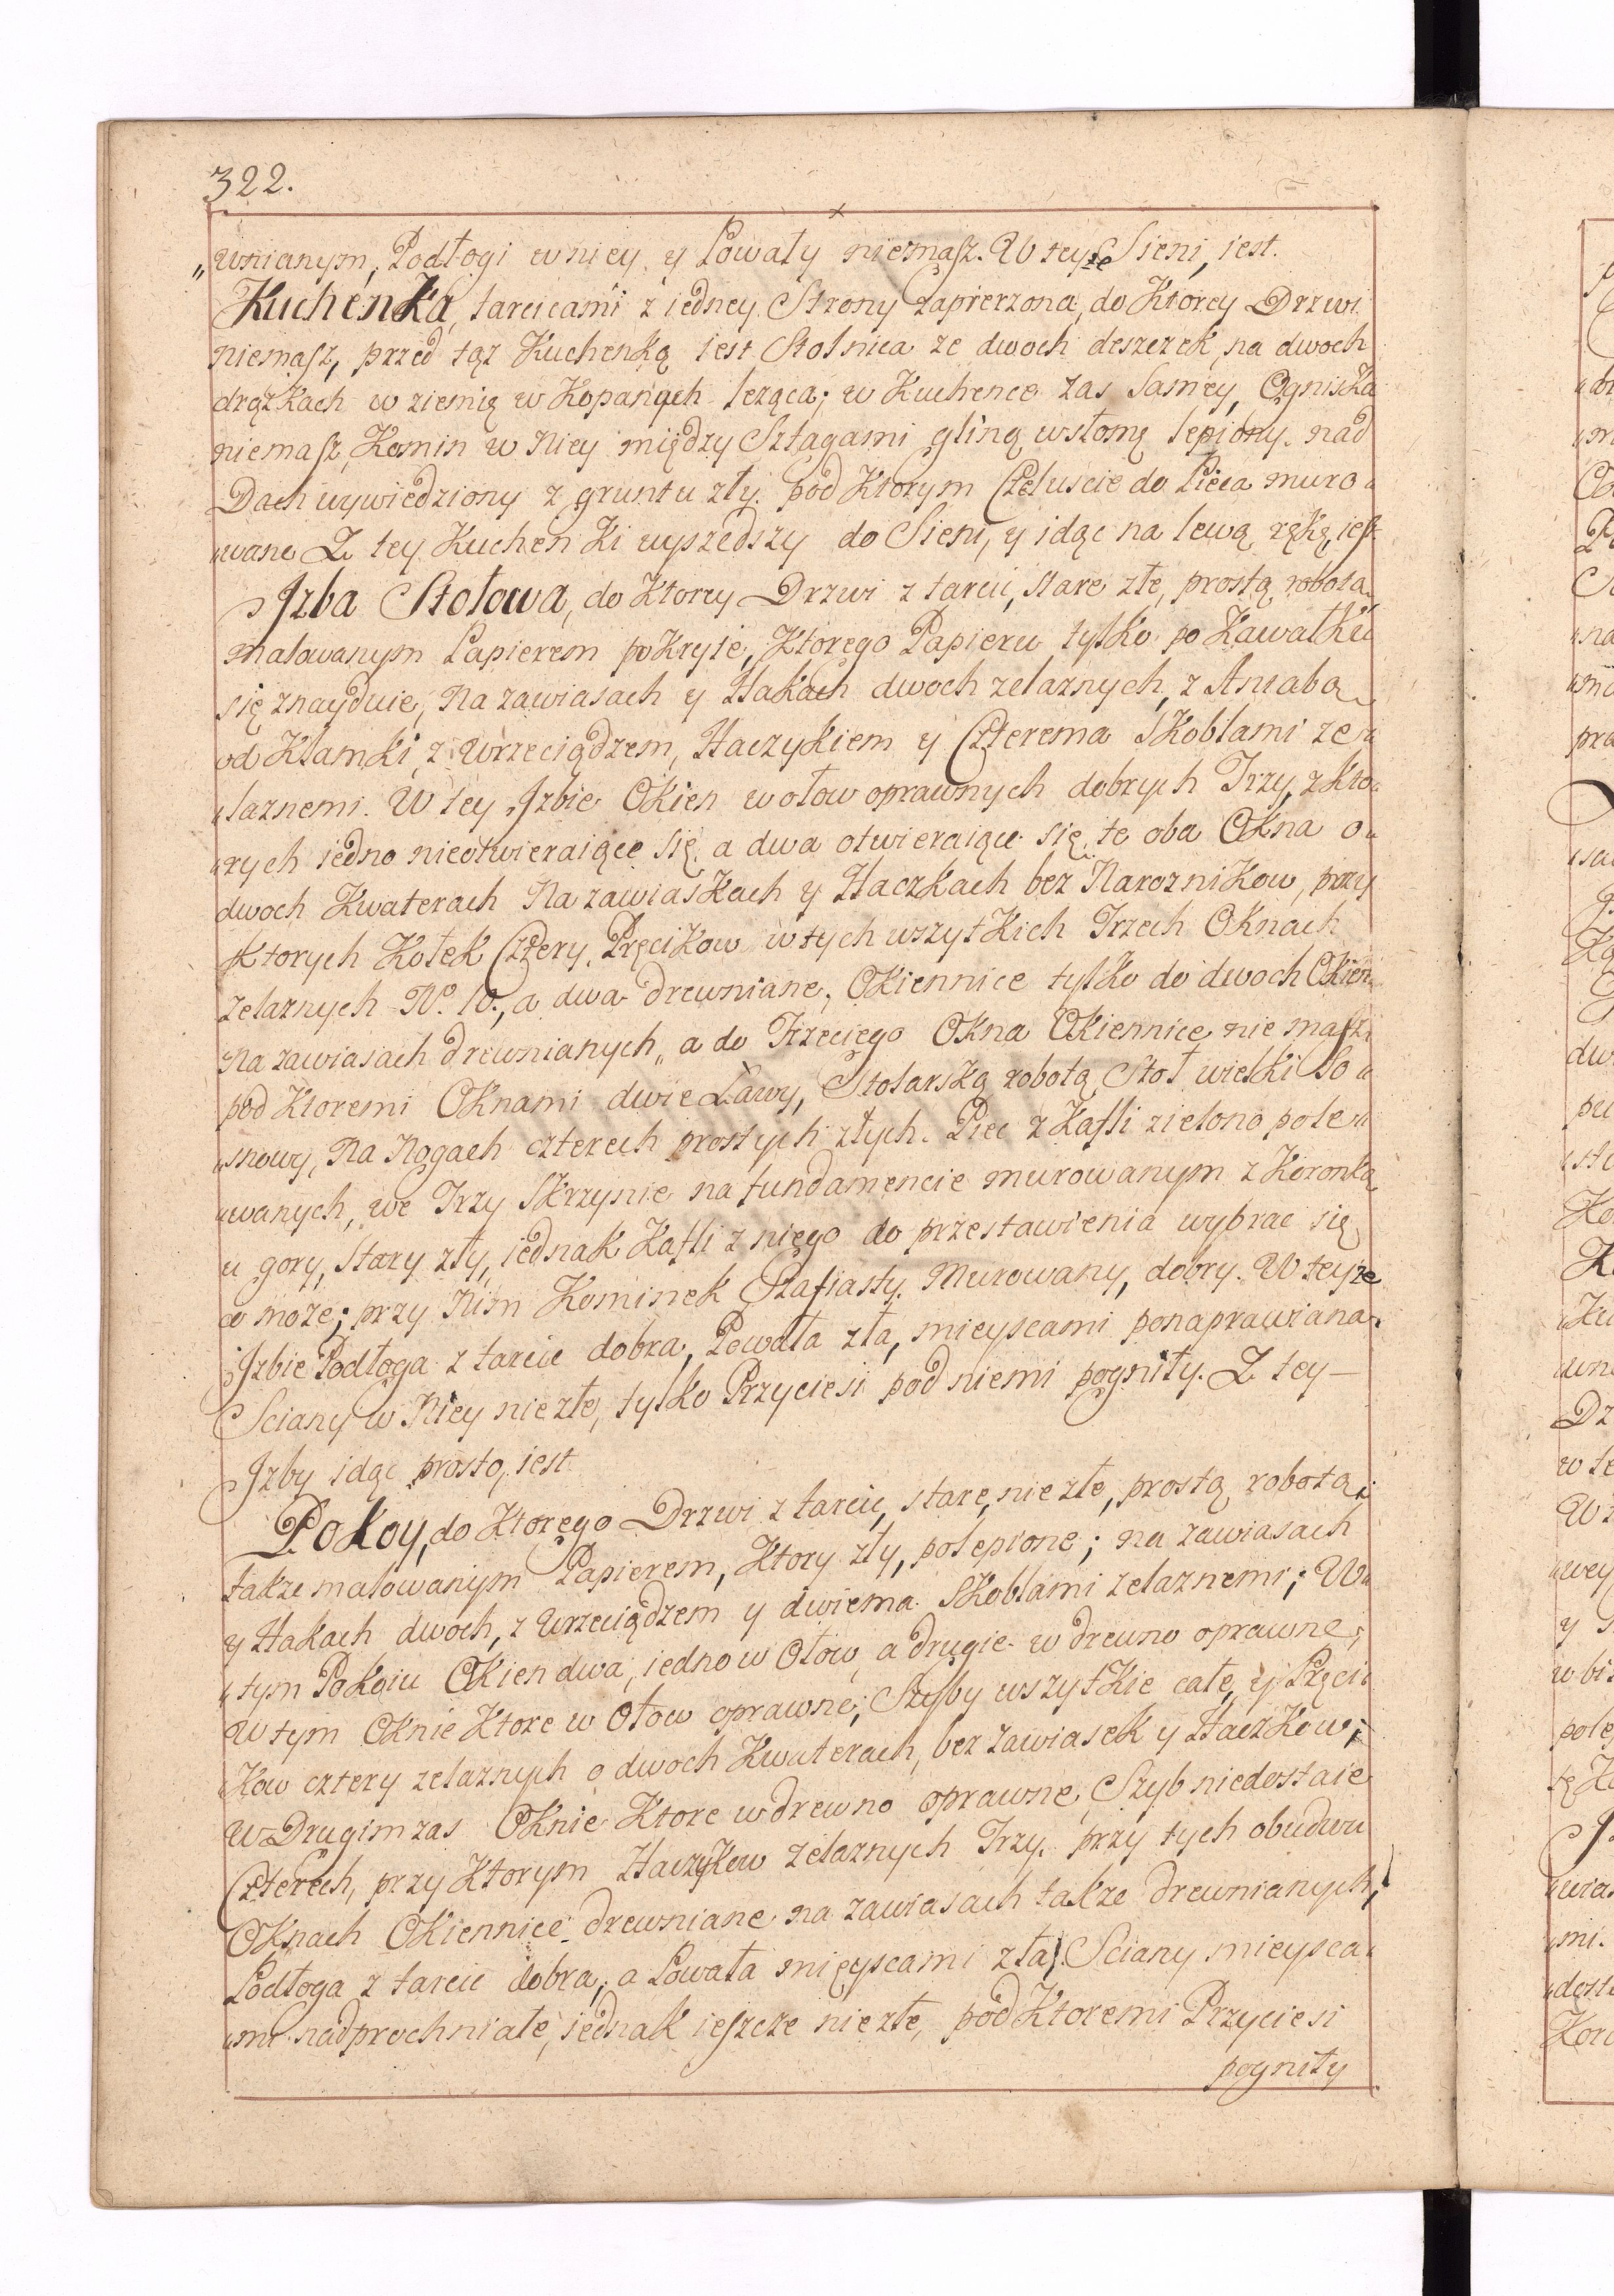 322.
„wnianym, Podłogi w niey, y Powały niemasz. W teyże Sieni, iest.
Kuchenka, tarcicami z iedney Strony zapierzona, do Ktorey Drzwi
niemasz, przed tąż Kuchenką iest Stolnica ze dwoch deszczek, na dwoch
drążkach w ziemię wkopanych leżąca; w Kuchence zas Samey, Ogniska
niemasz, Komin w Niey między Sztagami gliną w słomę lepiony, nad
Dach wywiedziony z gruntu zły, pod Ktorym Czeluscie do Pieca muro„
„wane Z tey Kuchenki wyszedszy do Sieni, y idąc na lewą rękę, iest
Izba Stołowa, do Ktorey Drzwi z tarcic, stare złe, prostą robotą
malowanym Papierem pokryte, Ktorego Papieru tylko po Kawałku
się znayduie, Na zawiasach y Hakach dwoch żelaznych, z Antabą
od Klamki, z Wrzeciądzem, Haczykiem y Czterema Skoblami że„
„laznemi. W tey Izbie Okien w ołow oprawnych dobrych Trzy, z Kto„
„rych iedno nieotwieraiące się, a dwa otwieraiące się, te oba Okna o„
dwoch Kwaterach Na zawiaskach y Haczkach bez Narożnikow, przy
Ktorych Kołek Cztery, Pręcikow w tych wszytkich Trzech Oknach
żelaznych N. 10., a dwa drewniane, Okiennice tylko do dwoch Okien
Na zawiasach drewnianych, a do Trzeciego Okna Okiennice niemasz.
pod Ktoremi Oknami dwie Ławy, Stolarską robotą, Stoł wielki So„
„snowy, Na Nogach czterech prostych złych. Piec z Kafli zielono pole„
„wanych, we Trzy Skrzynie na fundamencie murowanym z Koronką
u gory, Stary zły, iednak Kafli z niego do przestawienia wybrac się
co moze; przy Nim Kominek Szafiasty. Murowany, dobry. W teyże
Izbie Podłoga z tarcic dobra, Powała zła, mieyscami ponaprawiana.
Sciany w Niey niezłe, tylko Przyciesi pod niemi pogniły. Z tey —
Izby idąc prosto, iest
Pokoy, do Ktorego Drzwi z tarcic, stare, niezłe, prostą robotą;
także malowanym Papierem, Ktory zły, polepione; na zawiasach
y Hakach dwoch, z Wrzeciądzem y dwiema Skoblami żelaznemi; W„
„tym Pokoiu Okien dwa, iedno w Ołow, a drugie w drewno oprawne,
W tym Oknie Ktore w Ołow oprawne, Szyby wszytkie całe, y Pręci„
Kow cztery żelaznych o dwoch Kwaterach, bez zawiasek y Haczkow;
W Drugim zas Oknie Ktore w drewno oprawne, Szyb niedostaie
Czterech, przy Ktorym Haczykow żelaznych Trzy. przy tych obudwu
Oknach Okiennice drewniane na zawiasach także drewnianych,
Podłoga z tarcic dobra, a Powała mieyscami zła, Sciany mieysca„
„mi nadprochniałe, iednak ieszcze niezłe, pod Ktoremi Przyciesi
pogniły